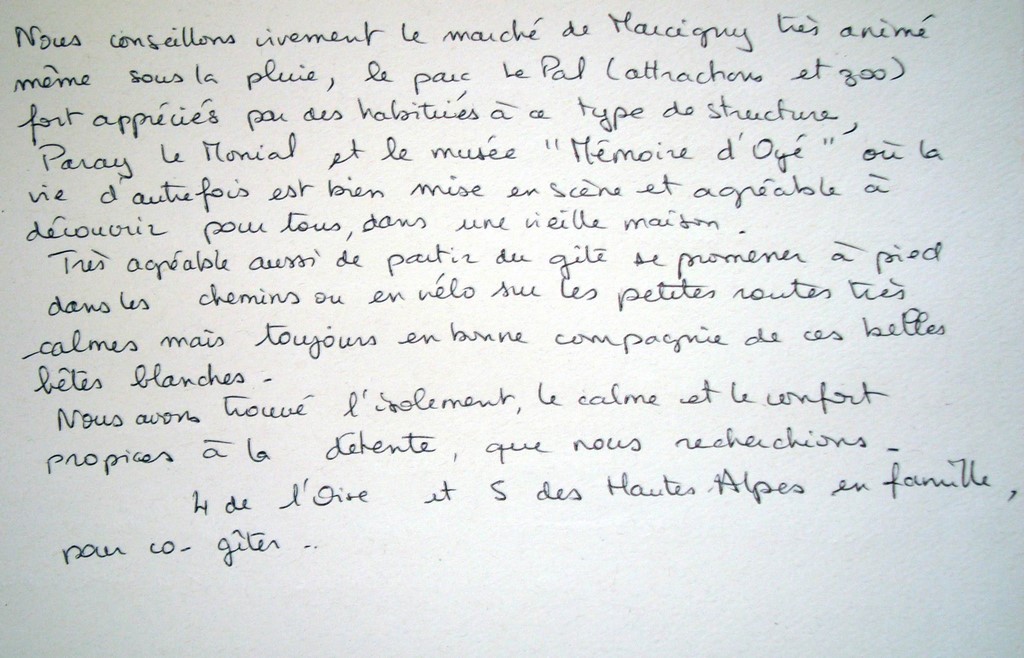 Nous conseillons vivement le marché de Marcigny très animé
même sous la pluie, le parc Le Pal (attractions et zoo)
fort appréciés par des habitués à ce type de structure,
Paray Le Monial et le musée "Mémoire d'Oyé" où la
vie d'autrefois est bien mise en scène et agréable à
découvrir pour tous, dans une vieille maison.
Très agréable aussi de partir du gîte se promener à pied
dans les chemins ou en vélo sur les petites routes très
calmes mais toujours en bonne compagnie de ces belles
bêtes blanches -
Nous avons trouvé l'isolement, le calme et le confort
propices à la détente, que nous recherchions -
4 de l'Oise et 5 des Hautes Alpes en famille,
pour co-gîter ..